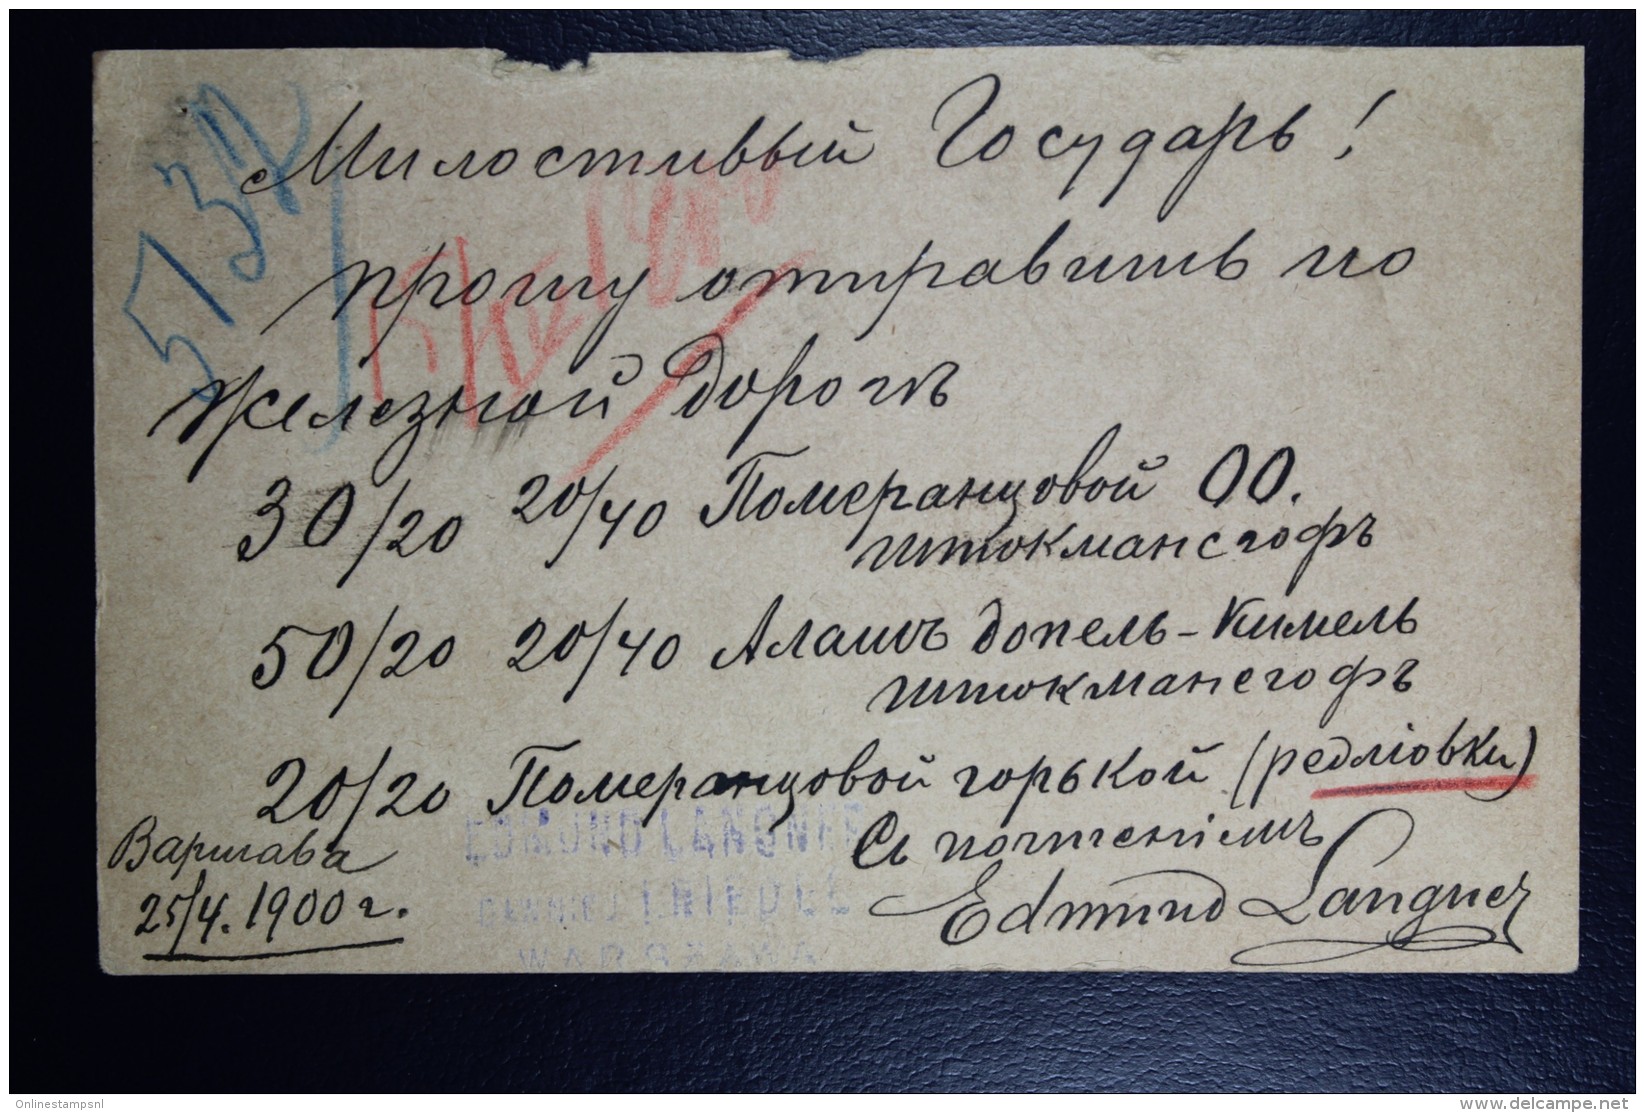 5132
Милостивый Государь!
прошу отправить по
железной дорогѣ
30/20 20/40 Померанцовой 00.
Штокмансгофъ
50/20 20/40 Алашъ допель-Кимель
Штокмансгофъ
20/20 Померанцовой горькой (редліовки)
Съ почтеніемъ
Edmund Langner
Варшава
25/4. 1900 г.
EDMUND LANGNER
WARSZAWA
Onlinestampsnl
http://www.delcampe.net